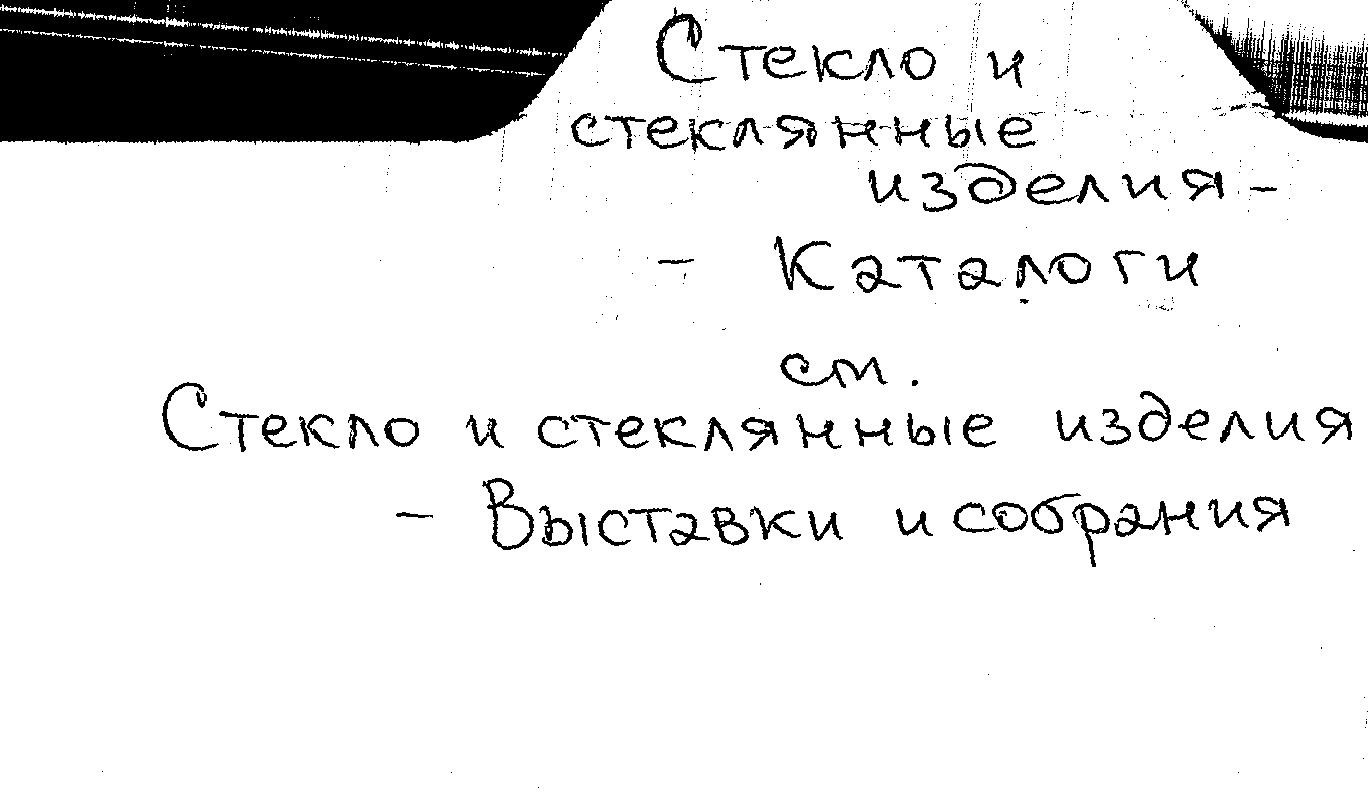 Стекло и
стеклянные
изделия -
- Каталоги
см.
Стекло и стеклянные изделия
- Выставки и собрания